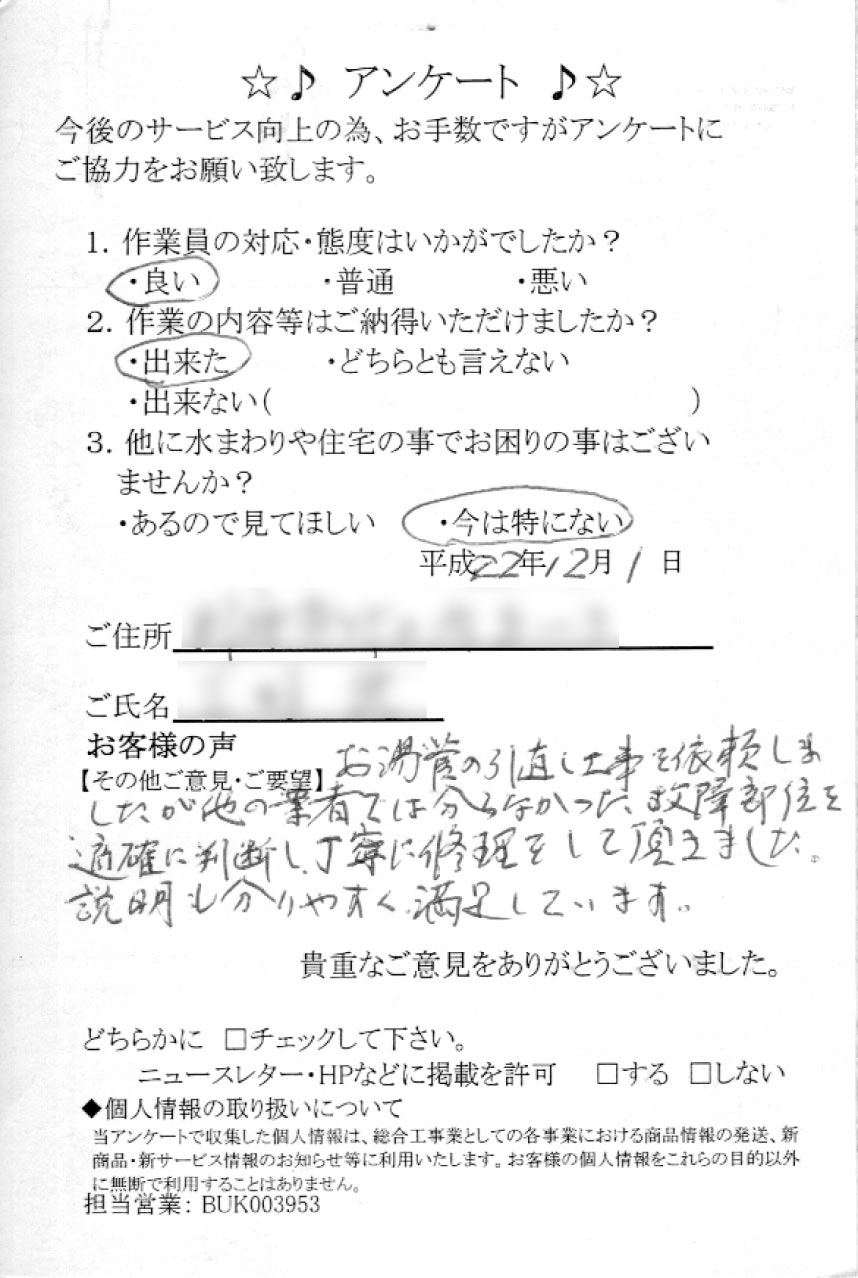 ☆♪ アンケート ♪☆
今後のサービス向上の為、お手数ですがアンケートに
ご協力をお願い致します。
1. 作業員の対応・態度はいかがでしたか？
・良い ・普通 ・悪い
2. 作業の内容等はご納得いただけましたか？
・出来た ・どちらとも言えない
・出来ない( )
3. 他に水まわりや住宅の事でお困りの事はござい
ませんか？
・あるので見てほしい ・今は特にない
平成22年12月1日
ご住所
ご氏名
お客様の声
【その他ご意見・ご要望】お湯管の引直し工事を依頼しま
したが他の業者では分らなかった、故障部位を
適確に判断し、丁寧に修理をして頂きました。
説明も分りやすく、満足しています。
貴重なご意見をありがとうございました。
どちらかに □チェックして下さい。
ニュースレター・HPなどに掲載を許可 □する □しない
◆個人情報の取り扱いについて
当アンケートで収集した個人情報は、総合工事業としての各事業における商品情報の発送、新
商品・新サービス情報のお知らせ等に利用いたします。お客様の個人情報をこれらの目的以外
に無断で利用することはありません。
担当営業： BUK003953